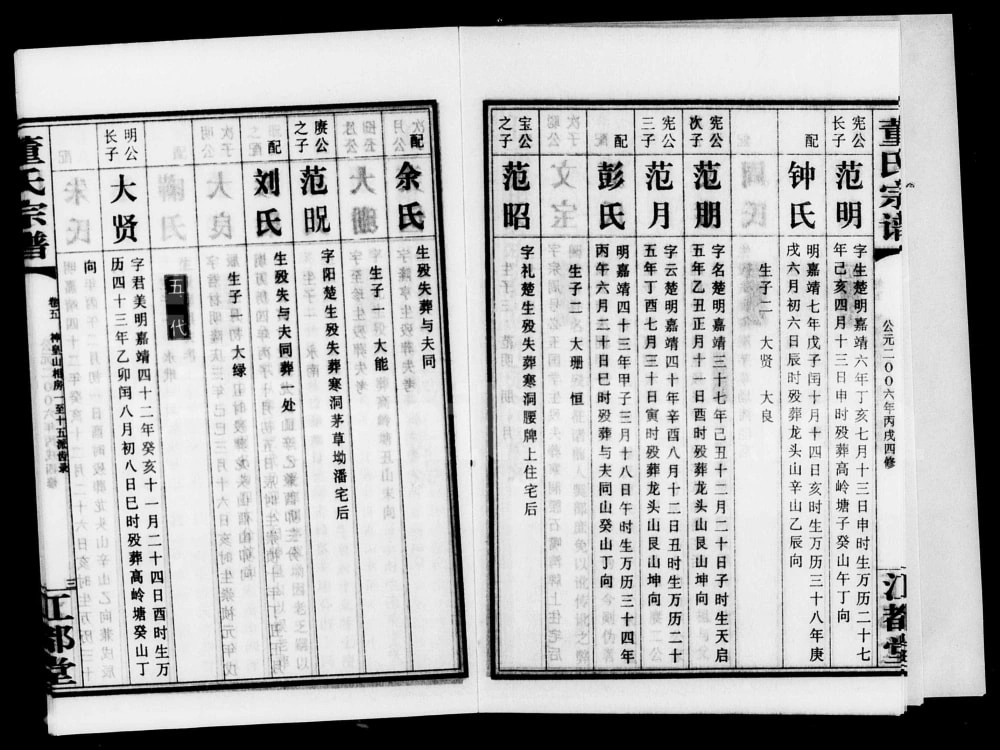 董氏宗谱
公元二〇〇六年丙戌四修
江都堂
宪公长子
范明
字生楚明嘉靖六年丁亥七月十三日申时生万历二十七
年己亥四月十三日申时殁葬高岭塘子癸山午丁向
配
钟氏
明嘉靖七年戊子闰十月十四日亥时生万历三十八年庚
戌六月初六日辰时殁葬龙头山辛山乙辰向
生子二 大贤 大良
宪公次子
范朋
字名楚明嘉靖三十七年己丑十二月二十日子时生天启
五年乙丑正月十一日酉时殁葬龙头山艮山坤向
宪公三子
范月
字云楚明嘉靖四十年辛酉八月十二日丑时生万历二十
五年丁酉七月三十日寅时殁葬龙头山艮山坤向
配
彭氏
明嘉靖四十三年甲子三月十八日午时生万历三十四年
丙午六月二十日巳时殁葬与夫同山癸山丁向
生子二 大珊 恒
宝公之子
范昭
字礼楚生殁失葬寒洞腰牌上住宅后
配
余氏
生殁失葬与夫同
生子一 大能
赓公之子
范晛
字阳楚生殁失葬寒洞茅草坳潘宅后
配
刘氏
生殁失与夫同葬一处
生子一 大绿
五代
明公长子
大贤
字君美明嘉靖四十二年癸亥十一月二十四日酉时生万
历四十三年乙卯闰八月初八日巳时殁葬高岭塘癸山丁
向
董氏宗谱
卷五 神堂山相房一至十五派齿录
三
江都堂